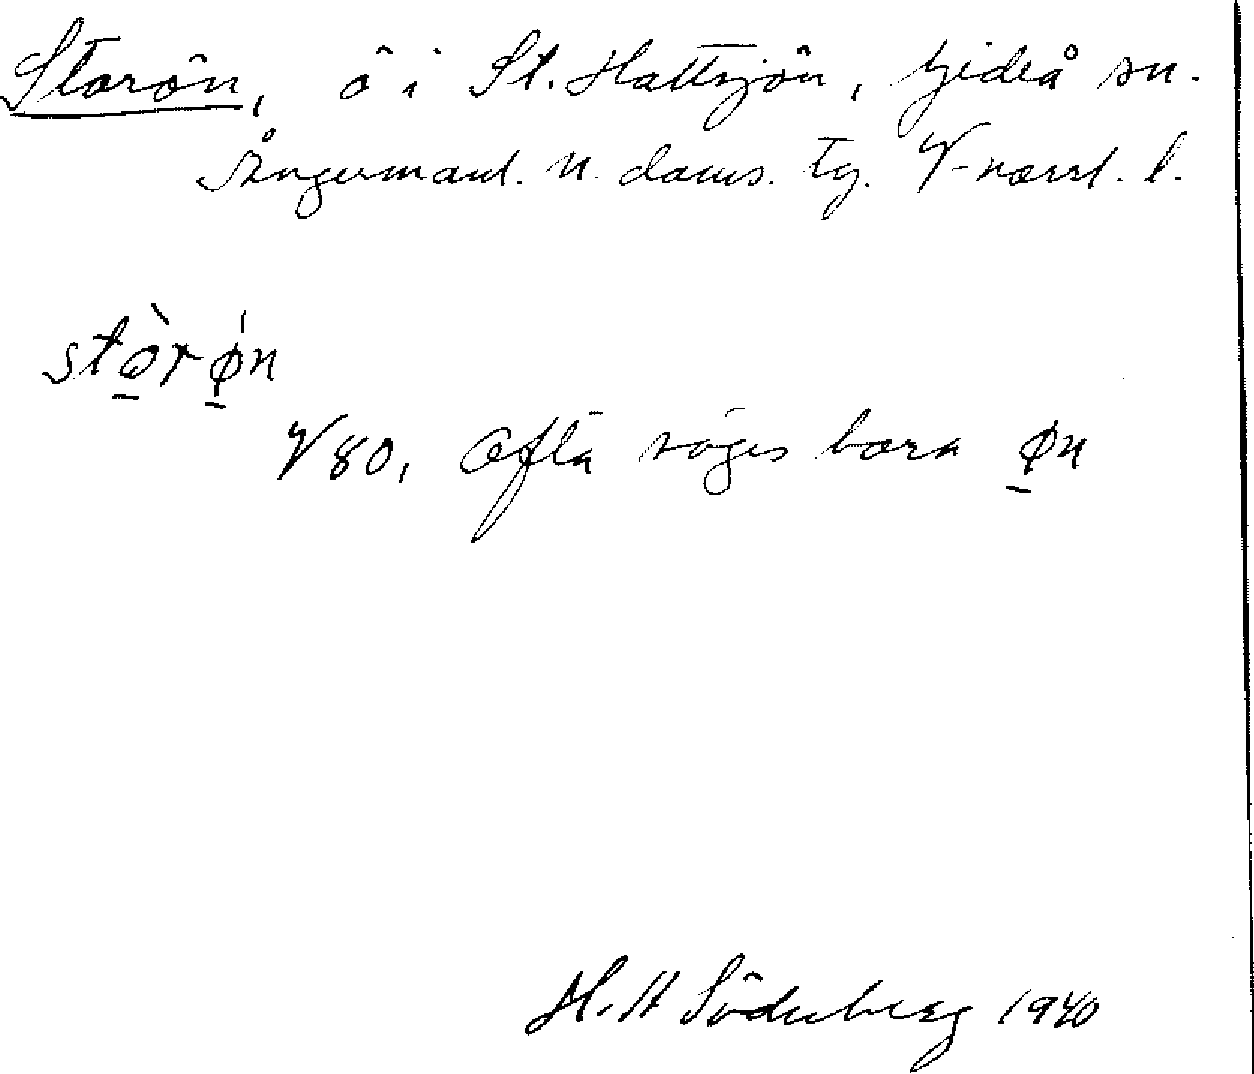 Storön, ö i St. Hattsjön, Gideå sn.
Ångermanl. n. doms. tg. V-norrl. l.
stòrǿn
V 80, Ofta säges bara øn
H. A Söderberg 1940